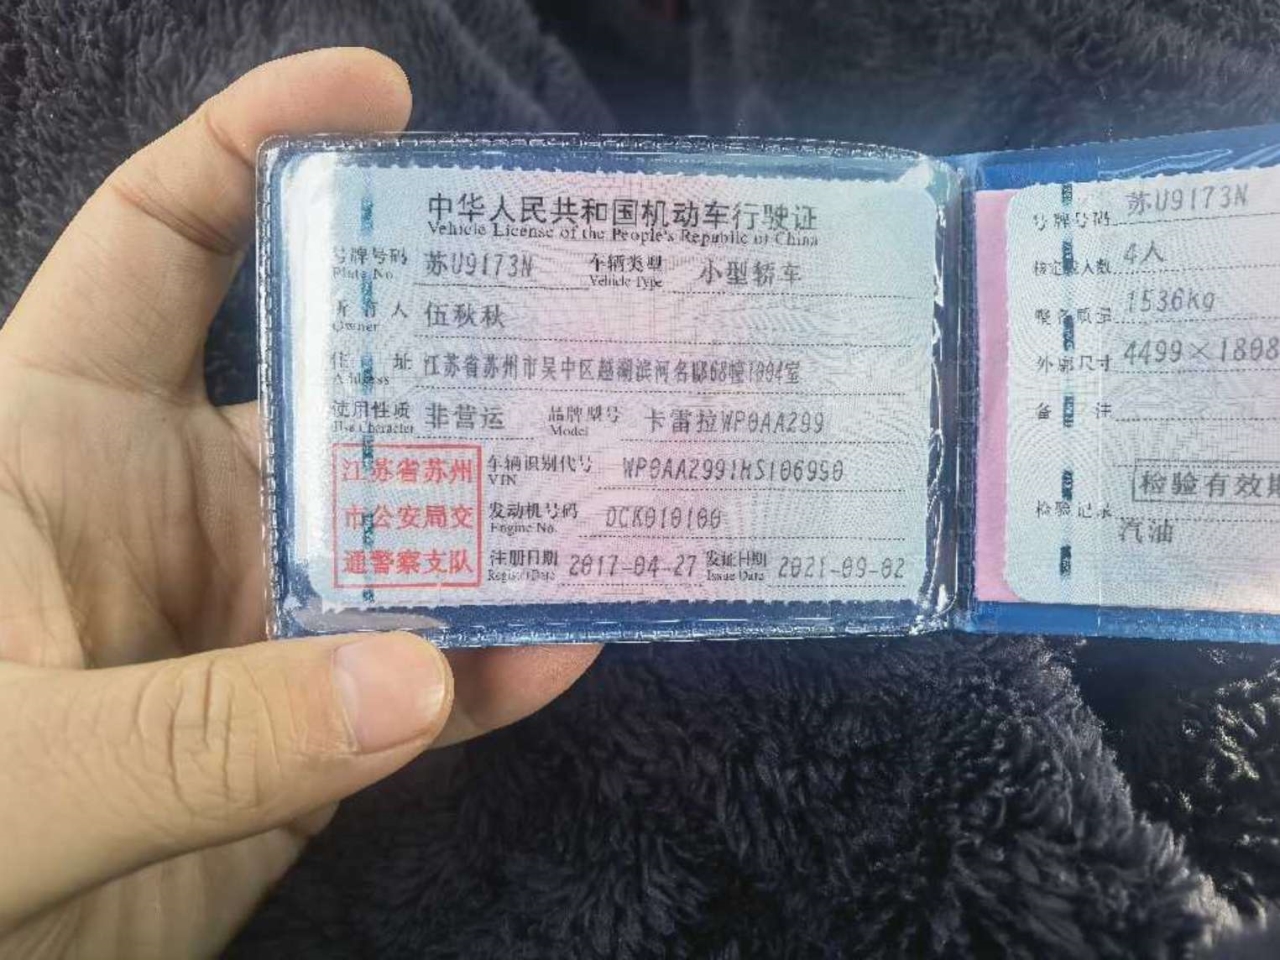 中华人民共和国机动车行驶证
Vehicle License of the People's Republic of China
号牌号码 苏U9173N 车辆类型 小型轿车
Plate No. Vehicle Type
所有人 伍秋秋
Owner
住址 江苏省苏州市吴中区越湖滨河名邸68幢1004室
Address
使用性质 非营运 品牌型号 卡雷拉WP0AA299
Use Character Model
江苏省苏州
市公安局交
通警察支队
车辆识别代号 WP0AA2991HS106950
VIN
发动机号码 DCK010100
Engine No.
注册日期 2017-04-27 发证日期 2021-09-02
Register Date Issue Date
号牌号码 苏U9173N
核定载人数 4人
整备质量 1536kg
外廓尺寸 4499×1808
备注
检验有效期
检验记录
汽油